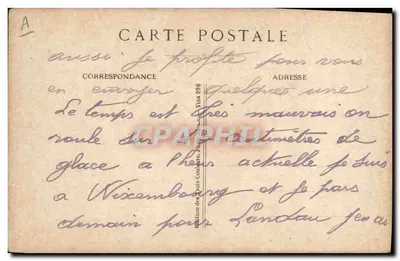 A
CARTE POSTALE
aussi Je profite pour vous
CORRESPONDANCE ADRESSE
en envoyer quelques une
Le temps est très mauvais on
roule sur centimètres de
glace a l'heure actuelle je suis
a Wixembourg et Je pars
demain pour Landau J'en ai
CPAPHIL